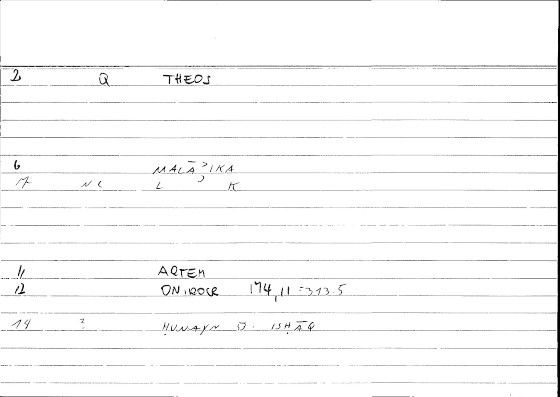 2 Q THEOS
6 MALĀʾIKA
17 NL L ʾ K
11 ARTEM
12 ONIROCR 174,11 = 313.5
14 ? ḤUNAYN B. ISḤĀQ